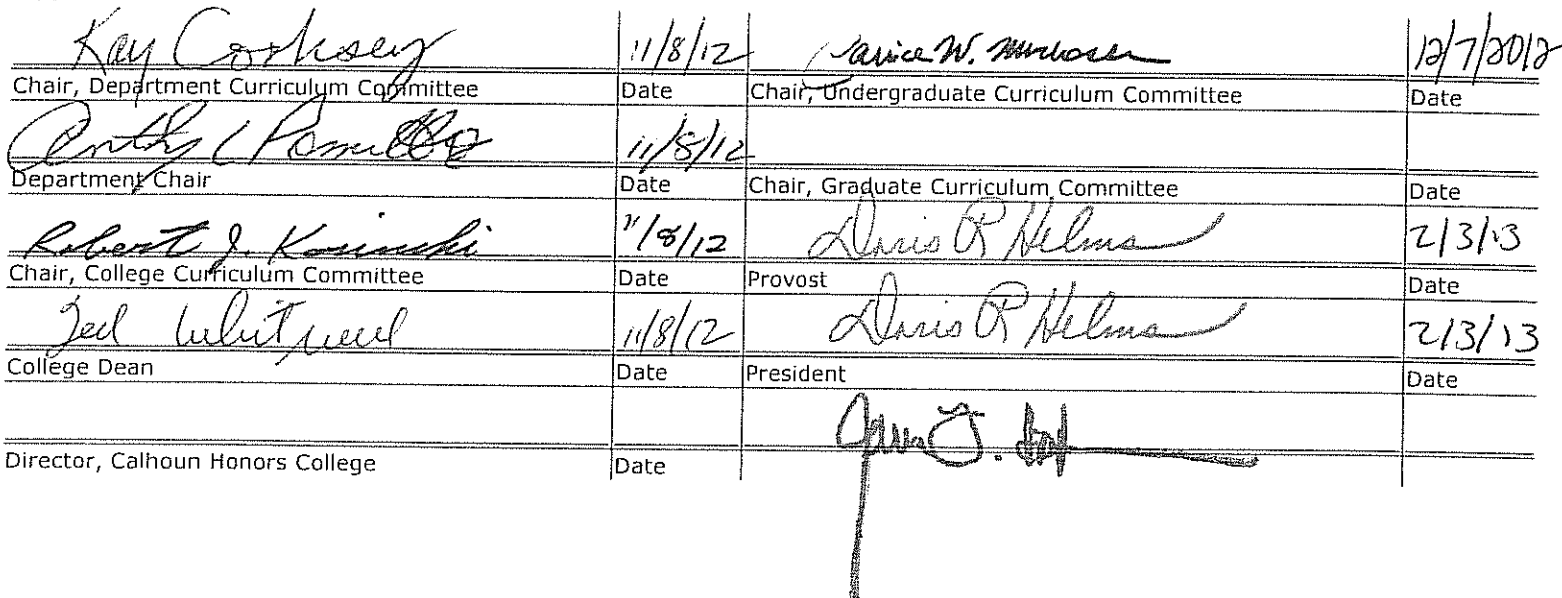 Kay Cooksey 11/8/12 Janice W. Murdoch 12/7/2012
Chair, Department Curriculum Committee Date Chair, Undergraduate Curriculum Committee Date
11/8/12
Department Chair Date Chair, Graduate Curriculum Committee Date
Robert J. Kosinski 11/8/12 Doris R Helms 2/3/13
Chair, College Curriculum Committee Date Provost Date
Ted Whitwell 11/8/12 Doris R Helms 2/3/13
College Dean Date President Date
Director, Calhoun Honors College Date